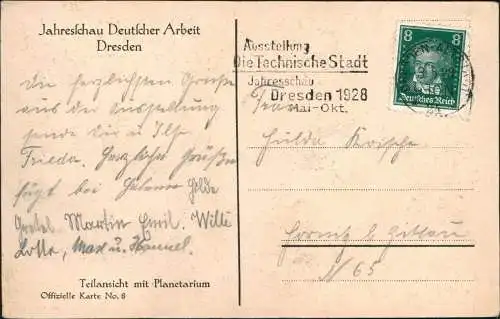 Jahresschau Deutscher Arbeit
Dresden
Die herzlichsten Grüsse
aus der Ausstellung
sende Dir u. Ilse
Frieda. Herzliche Grüße
fügt bei Helene Hilde
Gretel Martin Emil. Willi
Lotte, Max u. Hannel.
Teilansicht mit Planetarium
Offizielle Karte No. 8
Ausstellung
Die Technische Stadt
Jahresschau
Dresden 1928
Mai-Okt.
8 8
Deutsches Reich
Frau
Hulda Krische
b. Zittau
N 65